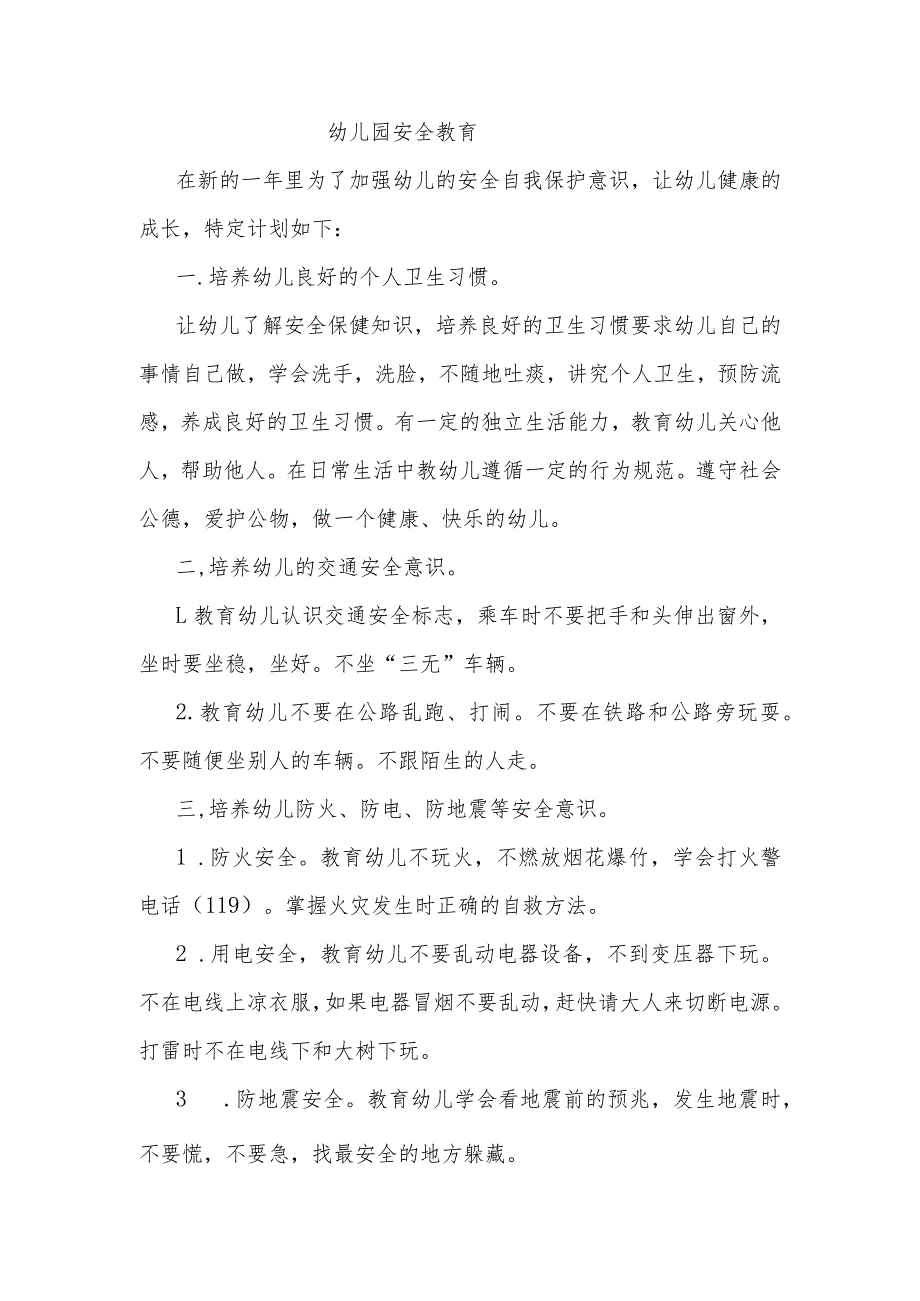 幼儿园安全教育
在新的一年里为了加强幼儿的安全自我保护意识，让幼儿健康的
成长，特定计划如下：
一.培养幼儿良好的个人卫生习惯。
让幼儿了解安全保健知识，培养良好的卫生习惯要求幼儿自己的
事情自己做，学会洗手，洗脸，不随地吐痰，讲究个人卫生，预防流
感，养成良好的卫生习惯。有一定的独立生活能力，教育幼儿关心他
人，帮助他人。在日常生活中教幼儿遵循一定的行为规范。遵守社会
公德，爱护公物，做一个健康、快乐的幼儿。
二,培养幼儿的交通安全意识。
L教育幼儿认识交通安全标志，乘车时不要把手和头伸出窗外，
坐时要坐稳，坐好。不坐“三无”车辆。
2.教育幼儿不要在公路乱跑、打闹。不要在铁路和公路旁玩耍。
不要随便坐别人的车辆。不跟陌生的人走。
三,培养幼儿防火、防电、防地震等安全意识。
1 .防火安全。教育幼儿不玩火，不燃放烟花爆竹，学会打火警
电话（119）。掌握火灾发生时正确的自救方法。
2 .用电安全，教育幼儿不要乱动电器设备，不到变压器下玩。
不在电线上凉衣服,如果电器冒烟不要乱动,赶快请大人来切断电源。
打雷时不在电线下和大树下玩。
3 .防地震安全。教育幼儿学会看地震前的预兆，发生地震时，
不要慌，不要急，找最安全的地方躲藏。